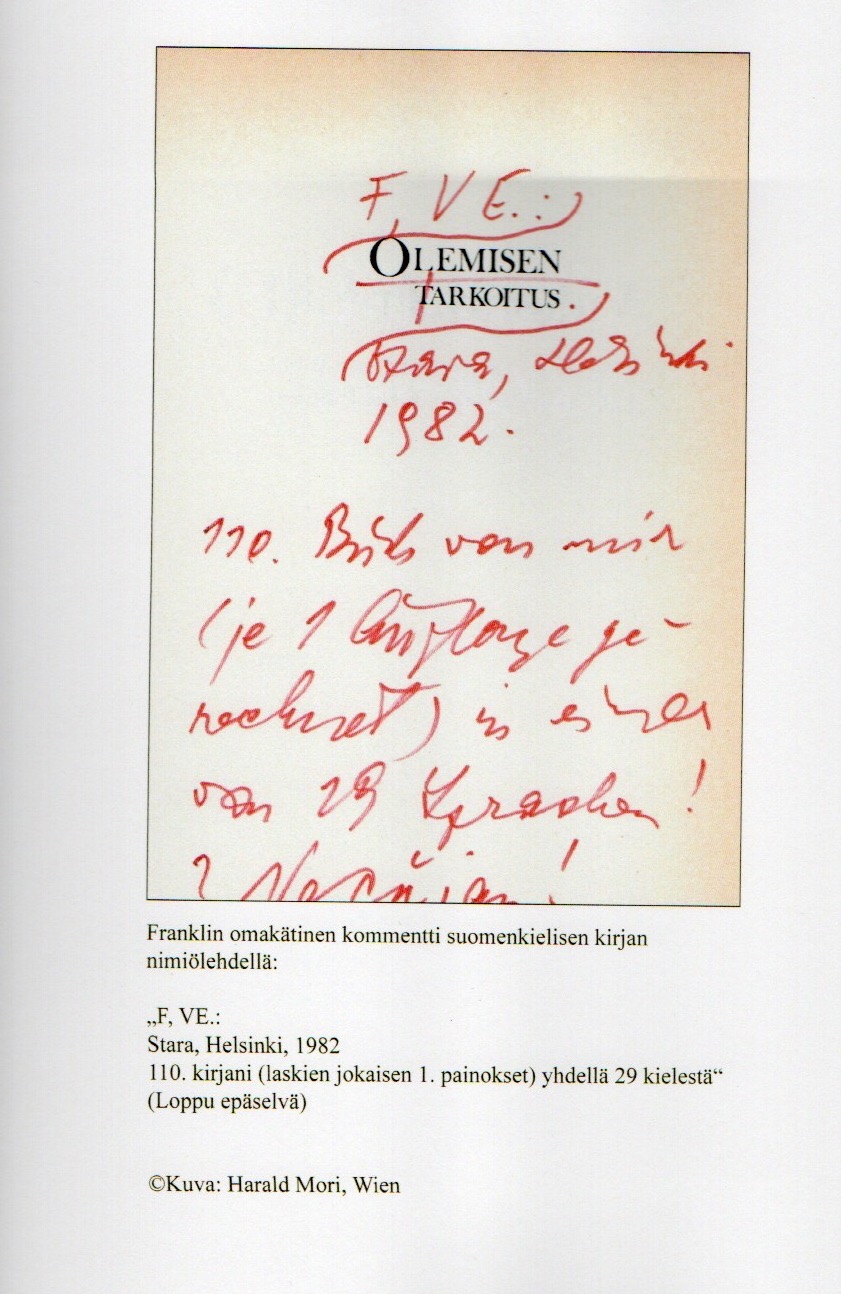 F, VE.:
OLEMISEN
TARKOITUS.
Stara, Helsinki
1982.
110. Buch von mir
(je 1 Auflage ge-
rechnet) in einer
von 29 Sprachen!
Franklin omakätinen kommentti suomenkielisen kirjan
nimiölehdellä:
„F, VE.:
Stara, Helsinki, 1982
110. kirjani (laskien jokaisen 1. painokset) yhdellä 29 kielestä“
(Loppu epäselvä)
©Kuva: Harald Mori, Wien